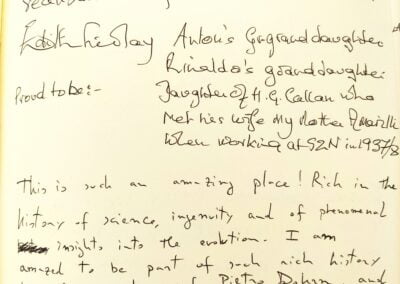 Edith Finlay Anton's Grgranddaughter
Rinaldo's granddaughter
Proud to be:- Daughter of H.G. Callan who
Met his wife my Mother Amarillis
When working at SZN in 1937/8
This is such an amazing place! Rich in the
history of science, ingenuity and of phenomenal
insights into the evolution. I am
amazed to be part of such rich history
of Pietro Dohrn, and